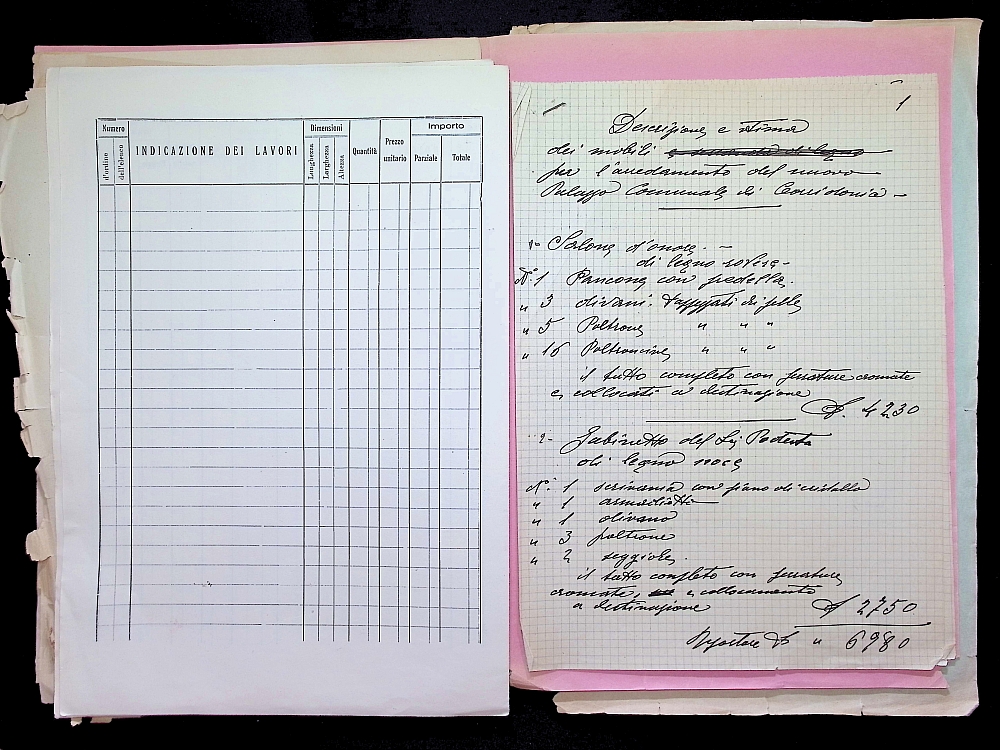 Numero
d'ordine
dell'elenco
INDICAZIONE DEI LAVORI
Dimensioni
Lunghezza
Larghezza
Altezza
Quantità
Prezzo
unitario
Importo
Parziale
Totale
1
Descrizione e stima
dei mobili
per l'arredamento del nuovo
Palazzo Comunale di Corridonia -
1- Salone d'onore. -
di legno rovere -
N. 1 Pancone con predella.
" 3 divani tappezzati di pelle
" 5 Poltrone " " "
" 16 Poltroncine " " "
il tutto completo con ferrature cromate
e collocati a destinazione
£. 4230
2- Gabinetto del Sig Podestà
di legno noce
N. 1 scrivania con piano di cristallo
" 1 armadietto
" 1 divano
" 3 poltrone
" 2 seggiole.
il tutto completo con ferrature
cromate, e collocamento
a destinazione
£ 2750
Riportare £ " 6980